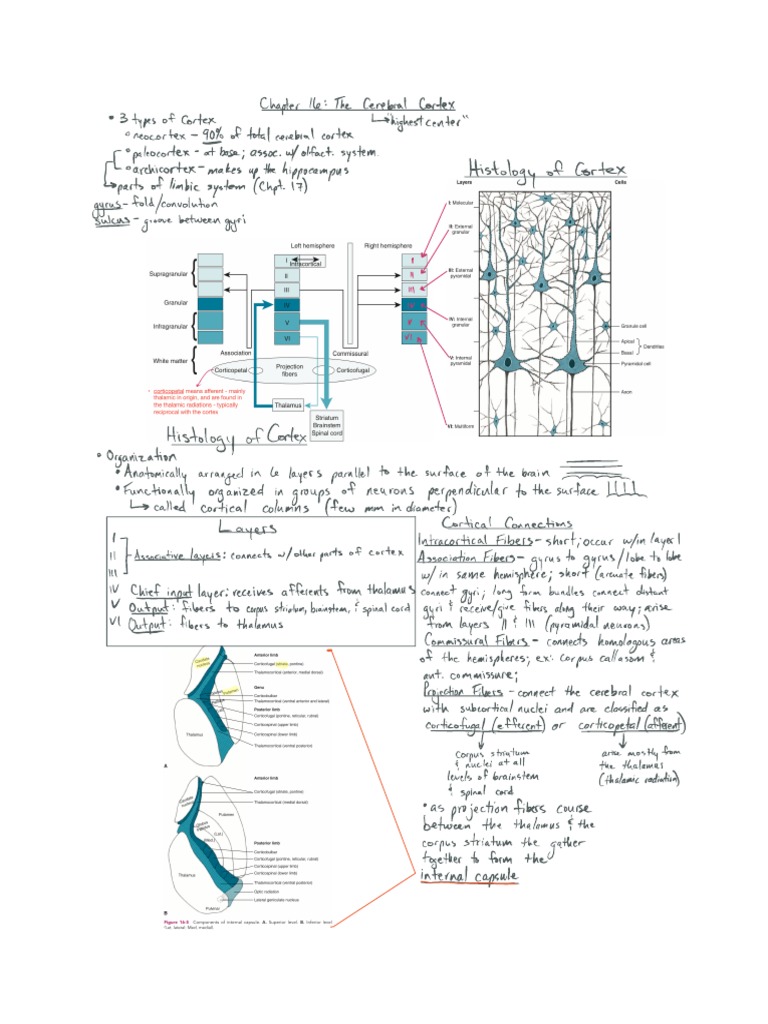 Chapter 16: The Cerebral Cortex
↳"highest center"
• 3 types of Cortex
◦ neocortex - 90% of total cerebral cortex
◦ paleocortex - at base; assoc. w/ olfact. system.
◦ archicortex - makes up the hippocampus
↳parts of limbic system (Chpt. 17)
gyrus - fold/convolution
sulcus - groove between gyri
Histology of Cortex
Layers
Cells
I: Molecular
II: External
granular
III: External
pyramidal
IV: Internal
granular
V: Internal
pyramidal
VI: Multiform
Granule cell
Apical
Basal
Dendrites
Pyramidal cell
Axon
Left hemisphere
Right hemisphere
Intracortical
Supragranular
Granular
Infragranular
White matter
I
II
III
IV
V
VI
I
II
III
IV
V
VI
Association
Commissural
Corticopetal
Projection
fibers
Corticofugal
Thalamus
Striatum
Brainstem
Spinal cord
◦ corticopetal means afferent - mainly
thalamic in origin, and are found in
the thalamic radiations - typically
reciprocal with the cortex
Histology of Cortex
◦ Organization
• Anatomically arranged in 6 layers parallel to the surface of the brain
• Functionally organized in groups of neurons perpendicular to the surface
↳ called cortical columns (few mm in diameter)
Layers
I
II
III
Associative layers: connects w/ other parts of cortex
IV Chief input layer: receives afferents from thalamus
V Output: fibers to corpus striatum, brainstem, & spinal cord
VI Output: fibers to thalamus
Cortical Connections
Intracortical Fibers - short; occur w/in layer I
Association Fibers - gyrus to gyrus/lobe to lobe
w/in same hemisphere; short (arcuate fibers)
connect gyri; long form bundles connect distant
gyri & receive/give fibers along their way; arise
from layers II & III (pyramidal neurons)
Commissural Fibers - connects homologous areas
of the hemispheres; ex: corpus callosom &
ant. commissure;
Projection Fibers - connect the cerebral cortex
with subcortical nuclei and are classified as
corticofugal (efferent) or corticopetal (afferent)
corpus striatum
& nuclei at all
levels of brainstem
& spinal cord
arise mostly from
the thalamus
(thalamic radiation)
• as projection fibers course
between the thalamus & the
corpus striatum the gather
together to form the
internal capsule
Caudate
nucleus
Putamen
Thalamus
Anterior limb
Corticofugal (striate, pontine)
Thalamocortical (anterior, medial dorsal)
Genu
Corticobulbar
Thalamocortical (ventral anterior and lateral)
Posterior limb
Corticofugal (pontine, reticular, rubral)
Corticospinal (upper limb)
Corticospinal (lower limb)
Thalamocortical (ventral posterior)
A
Caudate
nucleus
Putamen
Thalamus
Anterior limb
Corticofugal (striate, pontine)
Thalamocortical (medial dorsal)
Posterior limb
Corticobulbar
Corticofugal (pontine, reticular, rubral)
Corticospinal (upper limb)
Corticospinal (lower limb)
Thalamocortical (ventral posterior)
Optic radiation
Lateral geniculate nucleus
B
Figure 16-5 Components of internal capsule. A. Superior level. B. Inferior level.